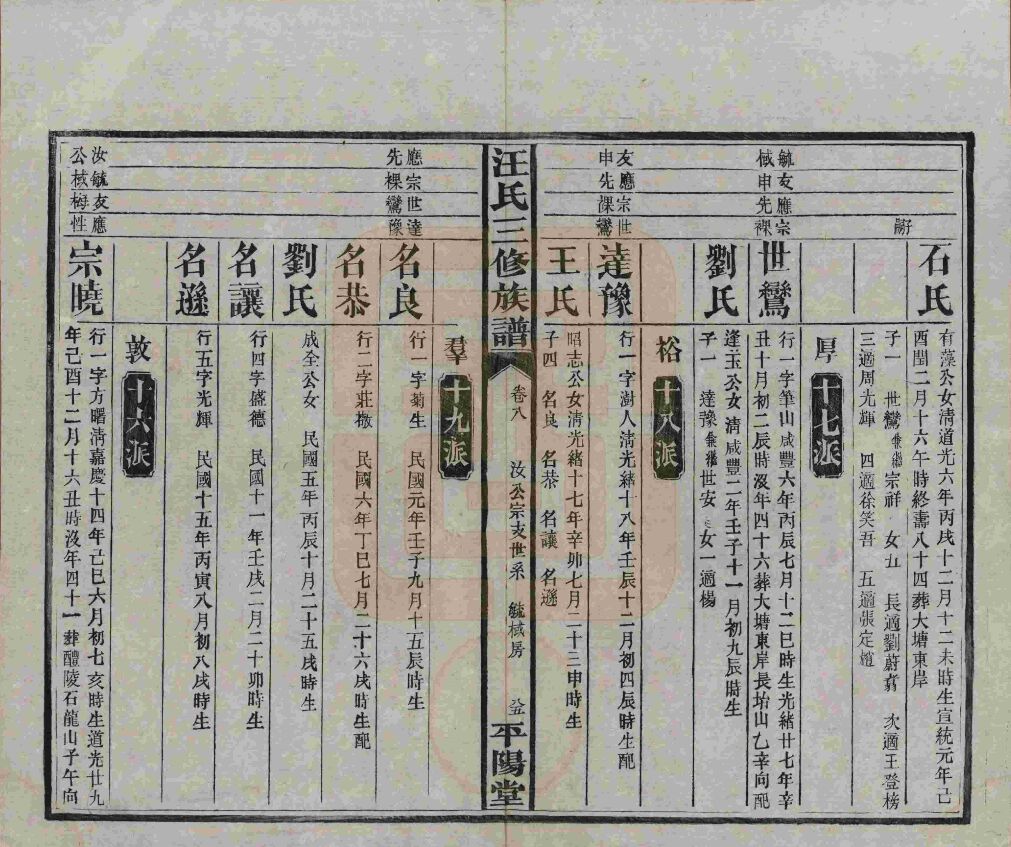 石氏
有藻公女清道光六年丙戌十二月十二未時生宣統元年己
酉閏二月十六午時終壽八十四葬大塘東岸
子一 世鸞兼繼宗祥 女五 長適劉蔚 次適王登榜
三適周光輝 四適徐笑吾 五適張定
厚 十七派
毓友應
棫申先宗
祼
世鸞
行一字筆山咸豐六年丙辰七月十二巳時生光緒廿七年辛
丑十月初二辰時沒年四十六葬大塘東岸長坮山乙辛向配
劉氏
逢玉公女清咸豐二年壬子十一月初九辰時生
子一 達豫兼繼世安 女一適楊
裕 十八派
友應宗世
申先祼鸞
達豫
行一字澍人清光緒十八年壬辰十二月初四辰時生配
王氏
昭志公女清光緒十七年辛卯七月二十三申時生
子四 名良 名恭 名讓 名遜
汪氏三修族譜
卷八 汝公宗支世系 毓棫房
平陽堂
羣 十九派
應宗世達
先祼鸞豫
名良
行一字菊生 民國元年壬子九月十五辰時生
名恭
行二字莊檄 民國六年丁巳七月二十六戌時生配
劉氏
成全公女 民國五年丙辰十月二十五戌時生
名讓
行四字盛德 民國十一年壬戌二月二十卯時生
名遜
行五字光輝 民國十五年丙寅八月初八戌時生
敦 十六派
汝毓友應
公棫梅性
宗曉
行一字方曙清嘉慶十四年己巳六月初七亥時生道光廿九
年己酉十二月十六丑時沒年四十一葬醴陵石龍山子午向